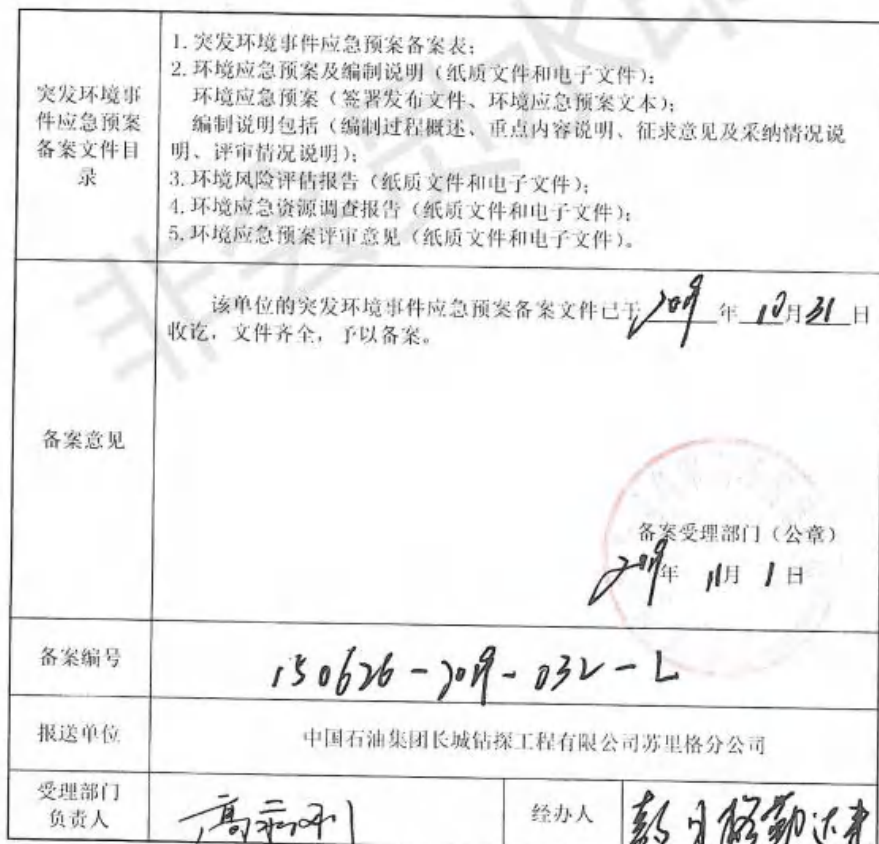 突发环境事
件应急预案
备案文件目
录
1. 突发环境事件应急预案备案表;
2. 环境应急预案及编制说明（纸质文件和电子文件）;
环境应急预案（签署发布文件、环境应急预案文本）;
编制说明包括（编制过程概述、重点内容说明、征求意见及采纳情况说
明、评审情况说明）;
3. 环境风险评估报告（纸质文件和电子文件）;
4. 环境应急资源调查报告（纸质文件和电子文件）;
5. 环境应急预案评审意见（纸质文件和电子文件）。
备案意见
该单位的突发环境事件应急预案备案文件已于 2019 年 10月 31 日
收讫，文件齐全，予以备案。
备案受理部门（公章）
2019年 11月 1 日
备案编号
150626-2019-032-L
报送单位
中国石油集团长城钻探工程有限公司苏里格分公司
受理部门
负责人
高
经办人